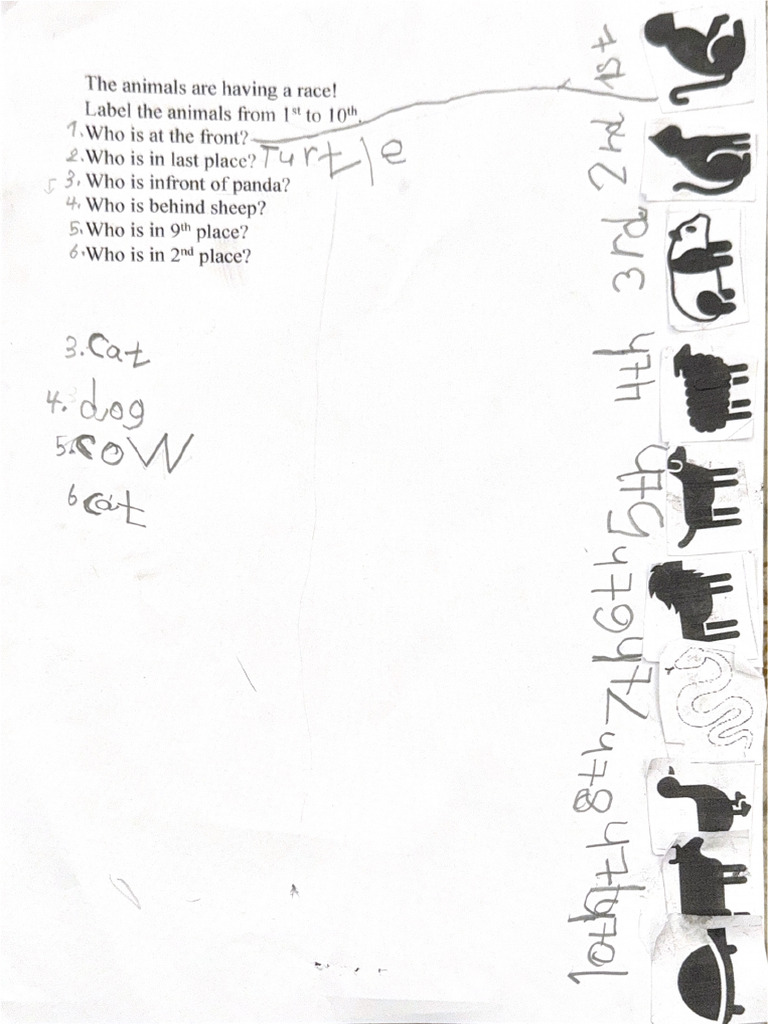 The animals are having a race!
Label the animals from 1st to 10th.
1. Who is at the front?
2. Who is in last place? Turtle
3. Who is infront of panda?
4. Who is behind sheep?
5. Who is in 9th place?
6. Who is in 2nd place?
3. cat
4. dog
5. cow
6 cat
1st
2nd
3rd
4th
5th
6th
7th
8th
9th
10th